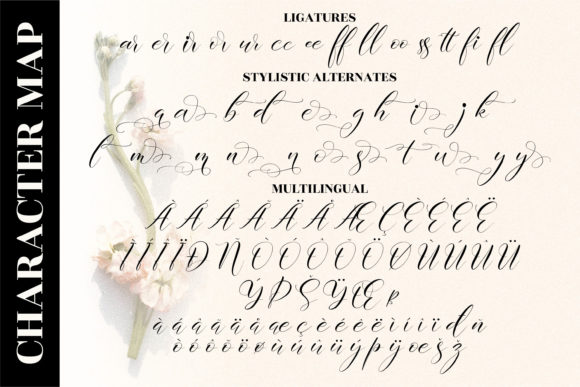 CHARACTER MAP
LIGATURES
ar er ir or ur cc ee ff ll oo ss tt fi fl
STYLISTIC ALTERNATES
a b d e g h i j k
l m n o s t w y y
MULTILINGUAL
À Á Â Ã Ä Å Æ Ç È É Ê Ë
Ì Í Î Ï Ð Ñ Ò Ó Ô Õ Ö Ø Ù Ú Û Ü
Ý Þ Š Ÿ Œ
à á â ã ä å æ ç è é ê ë ì í î ï ð ñ
ò ó ô õ ö ø ù ú û ü ý þ ÿ œ š ž